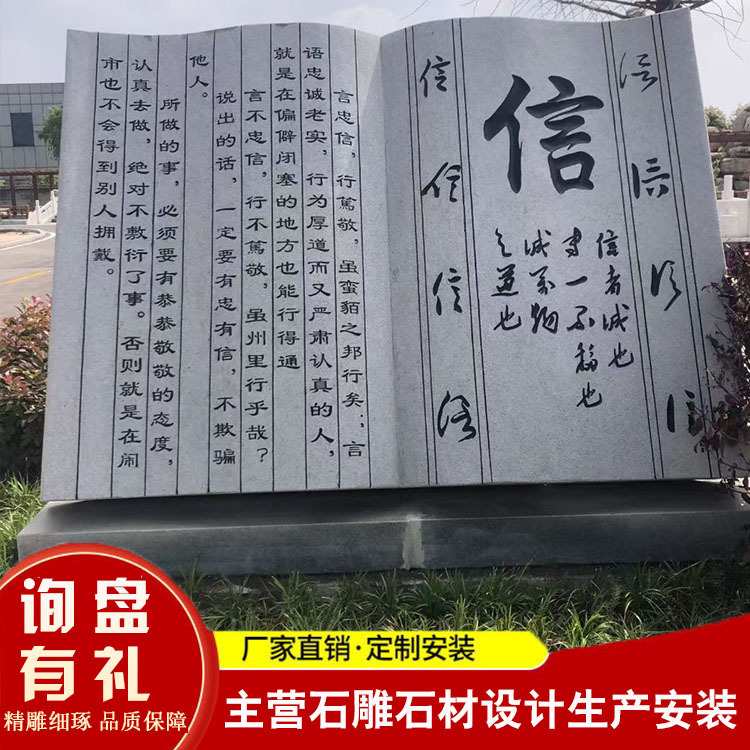 信
信
信
信
信
信者诚也
专一不移也
诚万物
之道也
信
信
信
信
言忠信，行篤敬，虽蛮貊之邦行矣；言
语忠诚老实，行为厚道而又严肃认真的人，
就是在偏僻闭塞的地方也能行得通
言不忠信，行不篤敬，虽州里行乎哉？
说出的话，一定要有忠有信，不欺骗
他人。
所做的事，必须要有恭恭敬敬的态度，
认真去做，绝对不敷衍了事。否则就是在闹
市也不会得到别人拥戴。
询盘
有礼
精雕细琢 品质保障
厂家直销·定制安装
主营石雕石材设计生产安装